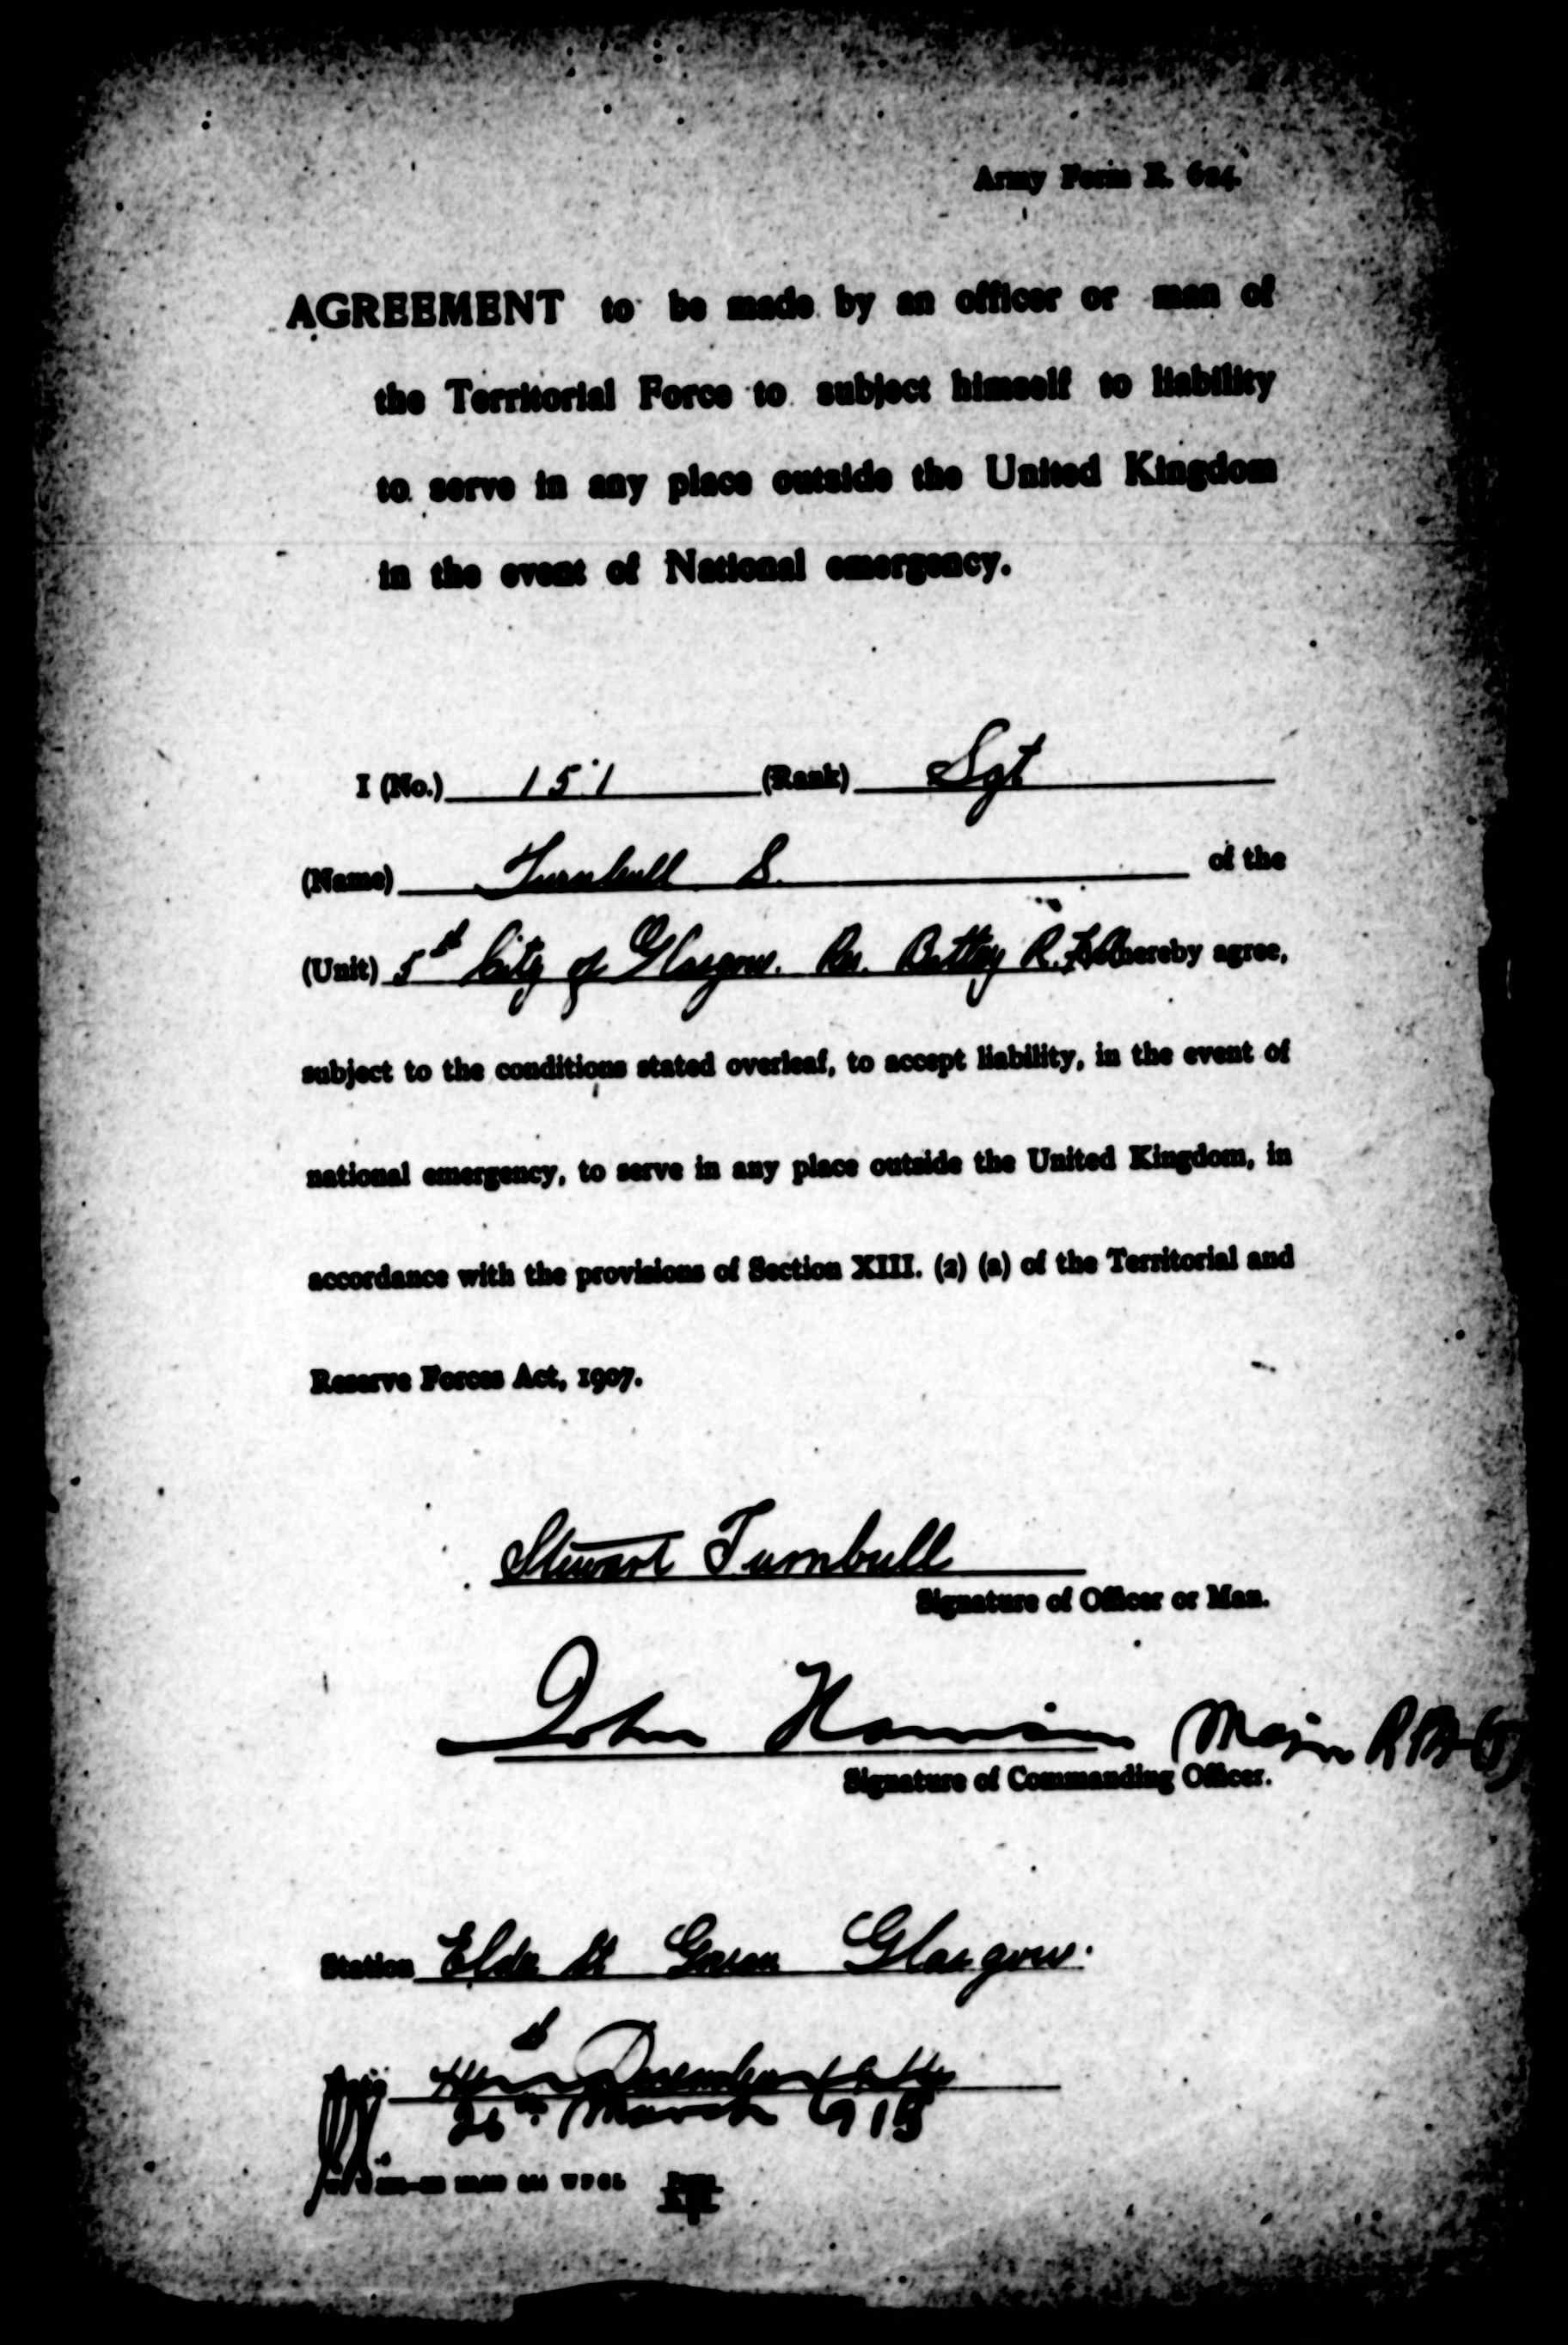 Army Form E. 624.
AGREEMENT to be made by an officer or man of
the Territorial Force to subject himself to liability
to serve in any place outside the United Kingdom
in the event of National emergency.
I (No.) 151 (Rank) Sgt
(Name) Turnbull S. of the
(Unit) 5th City of Glasgow. Battey R.F.A. hereby agree,
subject to the conditions stated overleaf, to accept liability, in the event of
national emergency, to serve in any place outside the United Kingdom, in
accordance with the provisions of Section XIII. (2) (a) of the Territorial and
Reserve Forces Act, 1907.
Stewart Turnbull
Signature of Officer or Man.
John Major
Signature of Commanding Officer.
Station Elder St Govan Glasgow.
December
26th March 1915